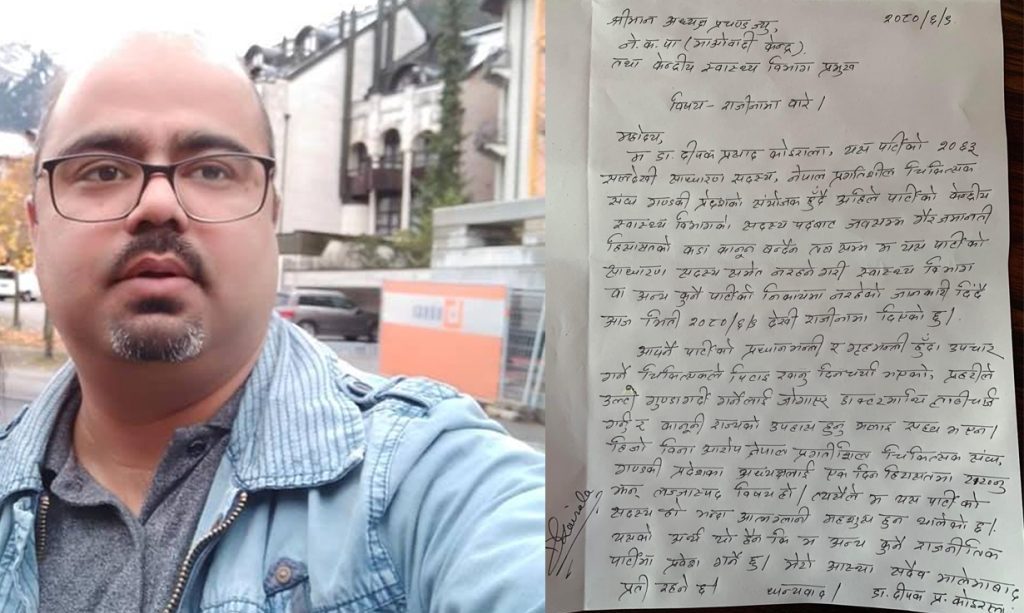 श्रीमान अध्यक्ष प्रचण्ड ज्यु, २०८०/६/३
ने.क.पा (माओवादी केन्द्र)
तथा केन्द्रीय स्वास्थ्य विभाग प्रमुख
विषय - राजीनामा बारे ।
महोदय,
म डा. दीपक प्रसाद कोइराला, यस पार्टीको २०६३
सालदेखी साधारण सदस्य, नेपाल प्रगतिशील चिकित्सक
संघ गण्डकी प्रदेशको संयोजक हुँदै अहिले पार्टीको केन्द्रीय
स्वास्थ्य विभागको सदस्य पदबाट जबसम्म गैरजमानती
हिरासतको कडा कानून बन्दैन तब सम्म म यस पार्टीको
साधारण सदस्य समेत नरहने गरी स्वास्थ्य विभाग
वा अन्य कुनै पार्टीको निकायमा नरहेको जानकारी दिँदै
आज मिती २०८०/६/३ देखी राजीनामा दिएको छु ।
आफ्नै पार्टीको प्रधानमन्त्री र गृहमन्त्री हुँदा उपचार
गर्ने चिकित्सकले पिटाइ खानु दिनचर्या भएको, प्रहरीले
उल्टो गुण्डागर्दी गर्नेलाई जोगाएर डाक्टरमाथि लाठीचार्ज
गर्नु र कानूनी राज्यको उपहास हुनु मलाई सह्य भएन ।
हिजो बिना आरोप नेपाल प्रगतिशिल चिकित्सक संघ,
गण्डकी प्रदेशका अध्यक्षलाई एक दिन हिरासतमा राख्नु
झनै लज्जास्पद विषय हो । त्यसैले म यस पार्टीको
सदस्य हो भन्दा आत्मग्लानी महशुस हुन थालेको छ ।
यसको अर्थ यो हैन कि म अन्य कुनै राजनीतिक
पार्टीमा प्रवेश गर्नेछु । मेरो आस्था सदैव मालेमावाद
प्रती रहने छ । धन्यवाद । डा. दीपक प्र. कोइराला